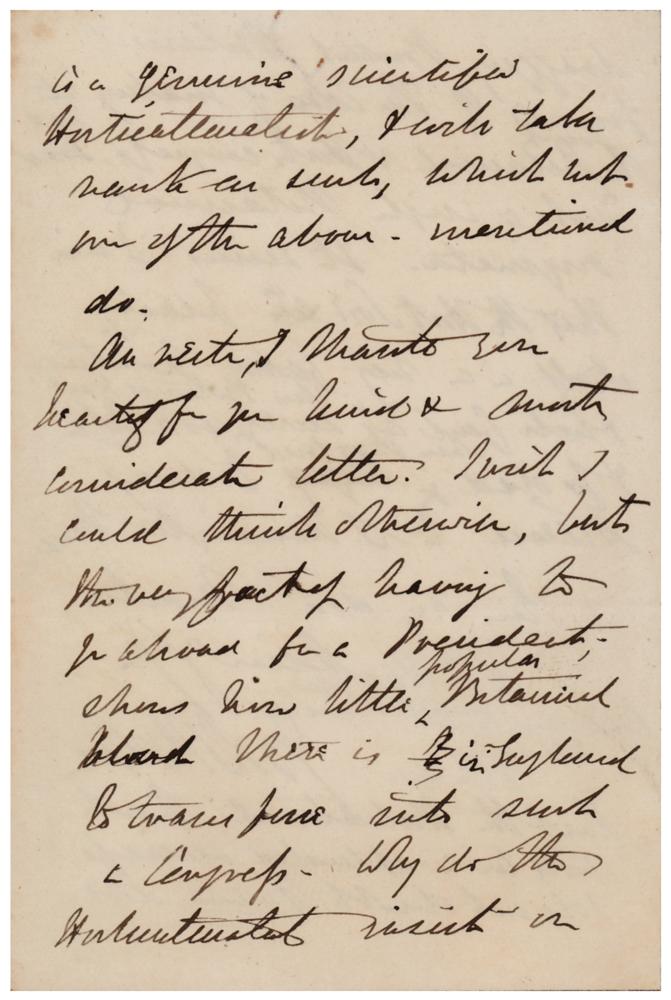 is a genuine scientific
Horticulturalist, & will take
rank as such, which not
one of the above-mentioned
do.
I thank you
heartily for yr kind & most
considerate letter. I wish I
could think otherwise, but
the very fact of having to
go abroad for a President,
shows how little popular Botanical
blood there is in England
to transfuse into such
a Congress - Why do the
Horticulturalists insist on